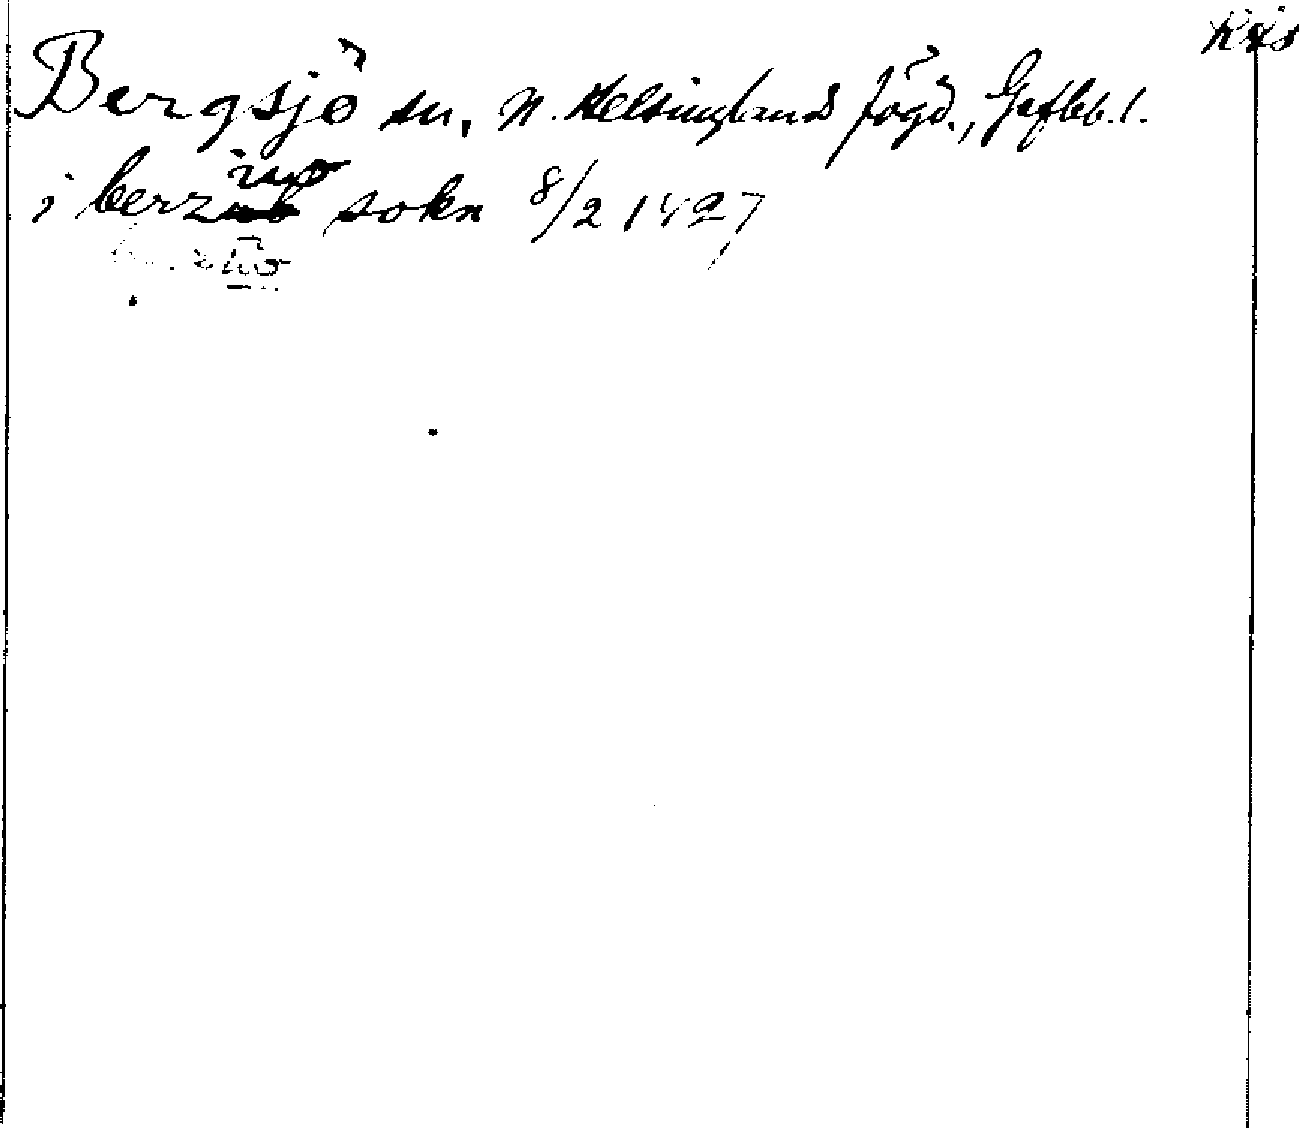 Bergsjö sn, N. Helsinglands fögd., Gefleb. l.
i berz sokn 8/2 1427